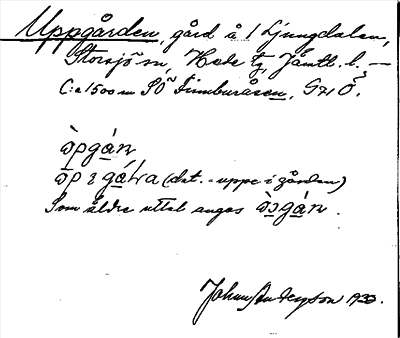 Uppgården, gård å 1 Ljungdalen,
Storsjö sn, Hede tg, Jämtl. l. —
C:a 1500 m SÖ Dunsuråsen, G21 Ö.
òpgán
òp ɩ gáɩa (dat. = uppe i gården)
Som äldre uttal anges òɔgán.
Johan Anderzson 1933.